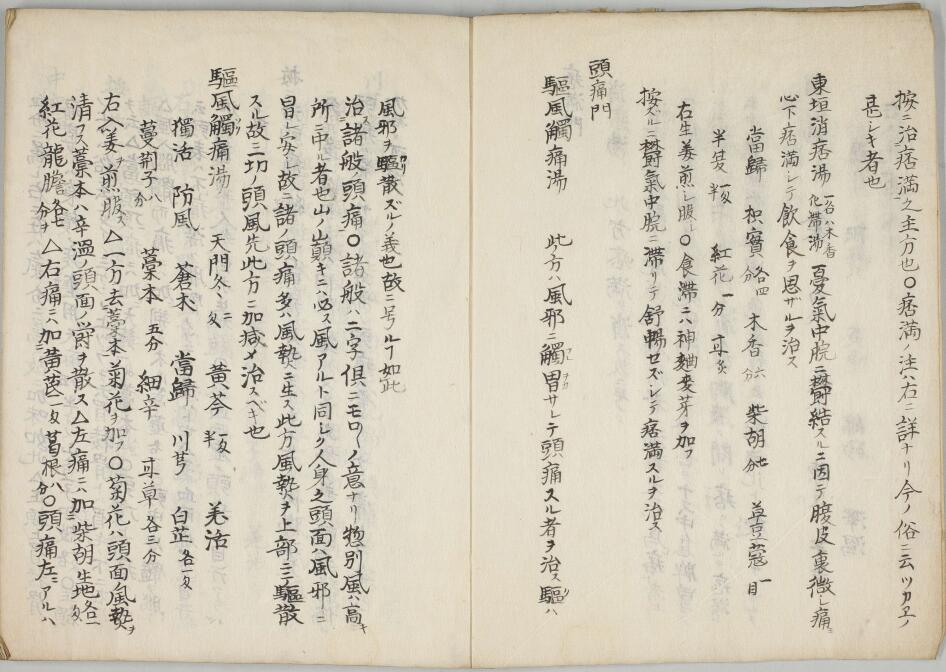 按ニ治痞滿之主方也〇痞滿ノ注ハ右ニ詳ナリ今ノ俗ニ云ツカヱノ
甚シキ者也
東垣消痞湯 一名ハ木香化滞湯 憂氣中脘ニ欝結スルニ因テ腹皮裏微シ痛ミ
心下痞滿シテ飲食ヲ思ザルヲ治ス
當歸 枳實 各四分 木香 六分 柴胡 七分 草豆蔲 一目
半夏 一匁半 紅花 一分 甘炙
右生姜煎シ服ス〇食滞ニハ神麯麦芽ヲ加フ
按ズルニ欝氣中脘ニ滞リテ舒暢セズシテ痞滿スルヲ治ス
頭痛門
驅風觸痛湯 此ノ方ハ風邪ニ觸冒サレテ頭痛スル者ヲ治ス驅ハ
風邪ヲ驅散ズルノ義也故ニ号ルㄱ如此
治ス諸般頭痛〇諸般ハ二字倶ニモロ〱ノ意ナリ惣別風ハ高キ
所ニ中ル者也山ノ巓キニ必ス風アルト同シク人身之頭面ハ風邪ニ
冒シ安シ故ニ諸ノ頭痛多ハ風熱ニ生ス此方風熱ヲ上部ニテ驅散
スル故ニ一切頭風先此方ニ加减メ治スベキ也
驅風觸痛湯 天門冬 二匁 黄芩 一匁半 羌活
獨活 防風 蒼朮 當歸 川芎 白芷 各一匁
蔓荆子 八分 藁本 五分 細辛 甘草 各三分
右入姜ヲ煎服ス△一方去藁本菊花ヲ加フ〇菊花ハ頭面風熱ヲ
清フス藁本ハ辛温ノ頭面ノ欝ヲ散ス△左痛ニハ加柴胡生地各一匁
紅花龍膽各七分ヲ△右痛ニハ加黄芪一匁葛根八分〇頭痛左ニアルハ